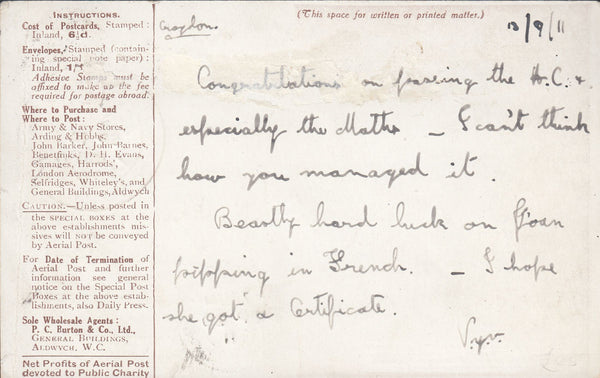 INSTRUCTIONS.
Cost of Postcards, Stamped:
Inland, 6½d.
Envelopes, Stamped (contain-
ing special note paper):
Inland, 1/1
Adhesive Stamps must be
affixed to make up the fee
required for postage abroad.
Where to Purchase and
Where to Post:
Army & Navy Stores,
Arding & Hobbs,
John Barker, John Barnes,
Benetfinks, D. H. Evans,
Gamages, Harrods',
London Aerodrome,
Selfridges, Whiteley's, and
General Buildings, Aldwych
CAUTION.—Unless posted in
the SPECIAL BOXES at the
above establishments mis-
sives will NOT be conveyed
by Aerial Post.
For Date of Termination of
Aerial Post and further
information see general
notice on the Special Post
Boxes at the above estab-
lishments, also Daily Press.
Sole Wholesale Agents:
P. C. Burton & Co., Ltd.,
GENERAL BUILDINGS,
ALDWYCH, W.C.
Net Profits of Aerial Post
devoted to Public Charity
(This space for written or printed matter.)
Croydon.
13/9/11
Congratulations on passing the H.C. &
especially the Maths — I can't think
how you managed it.
Beastly hard luck on Joan
pipping in French. — I hope
she got a Certificate.